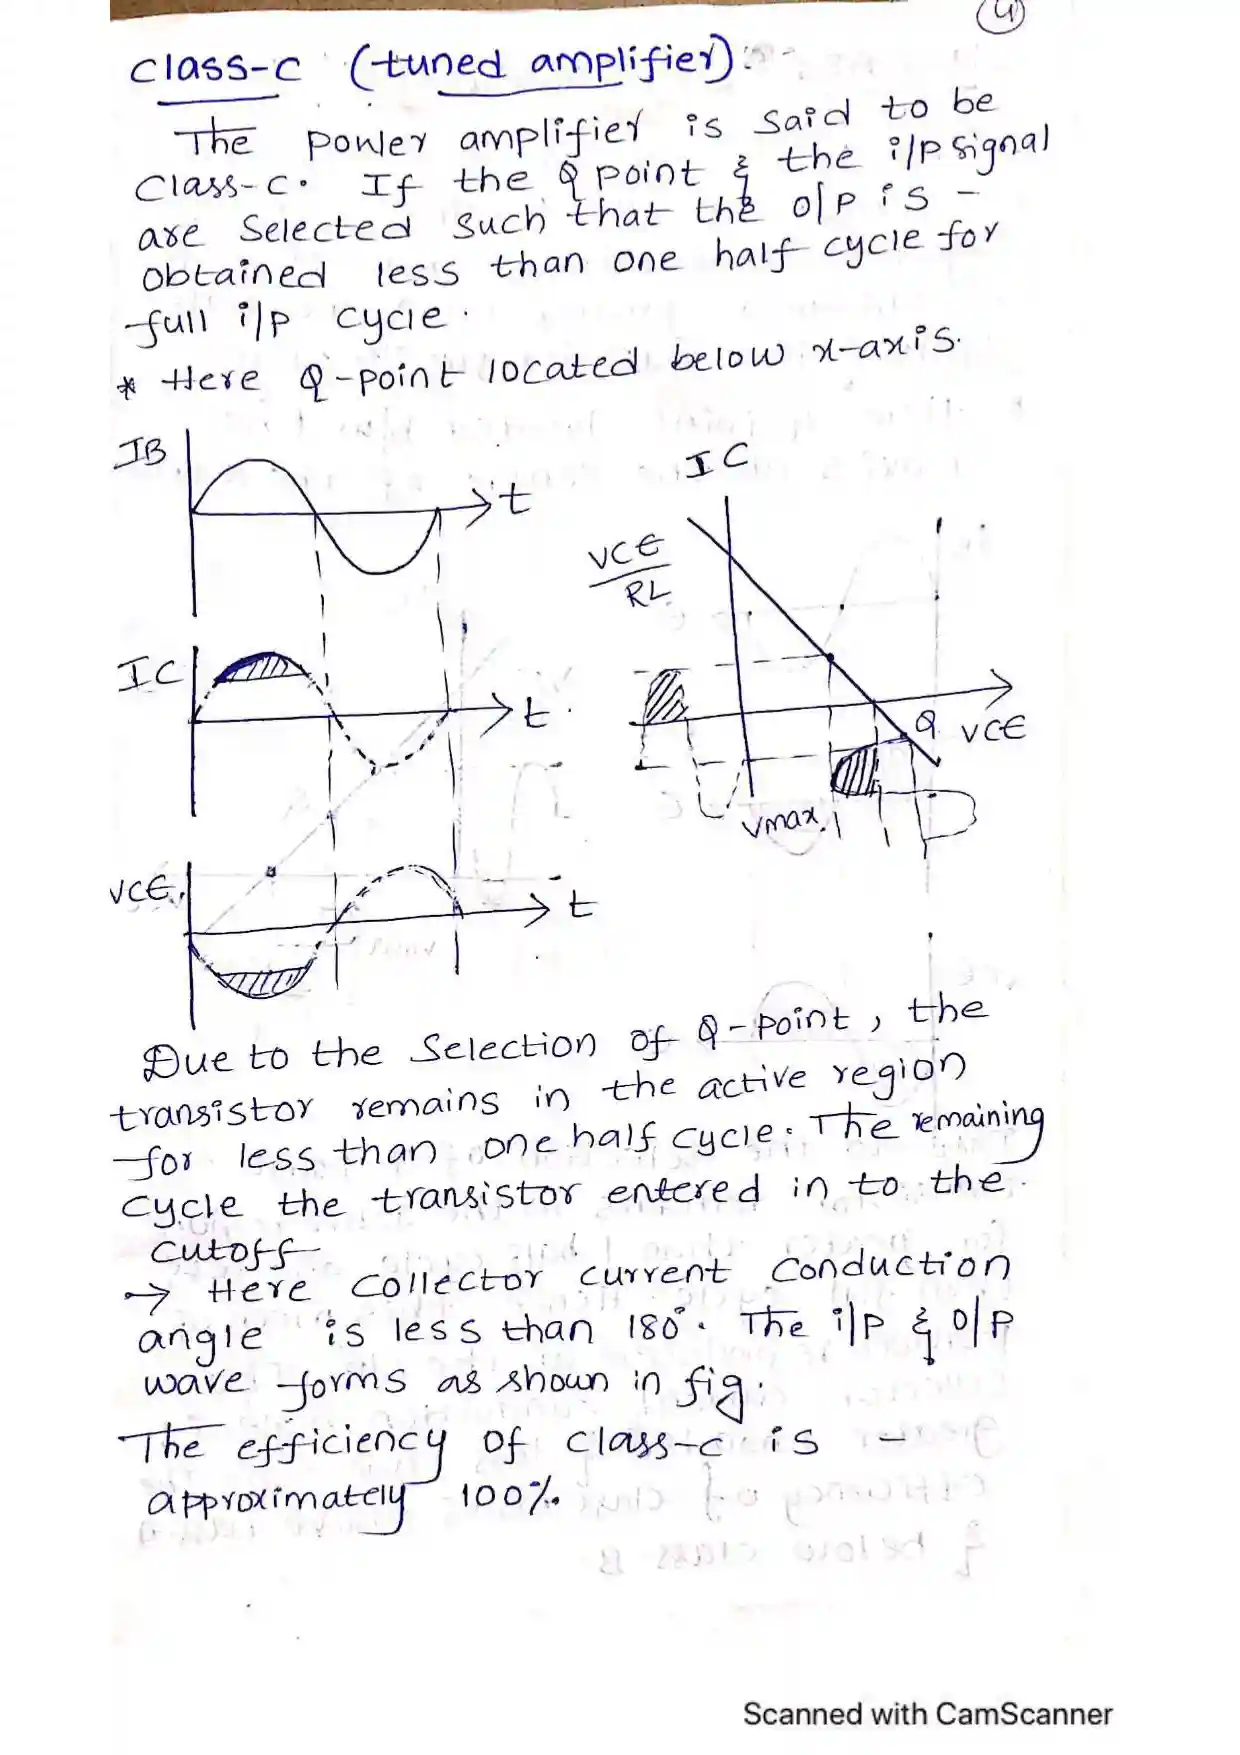 4
Class-C (tuned amplifier):-
The power amplifier is said to be
Class-C. If the Q point & the i/p signal
are Selected such that the o/p is -
obtained less than one half cycle for
full i/p cycle.
* Here Q-point located below x-axis.
IB
t
IC
t
VCE
t
IC
VCE
RL
Q
VCE
Vmax.
Due to the Selection of Q-point, the
transistor remains in the active region
for less than one half cycle. The remaining
cycle the transistor entered in to the
cutoff
→ Here collector current conduction
angle is less than 180°. The i/p & o/p
wave forms as shown in fig.
The efficiency of class-c is -
approximately 100%.
Scanned with CamScanner